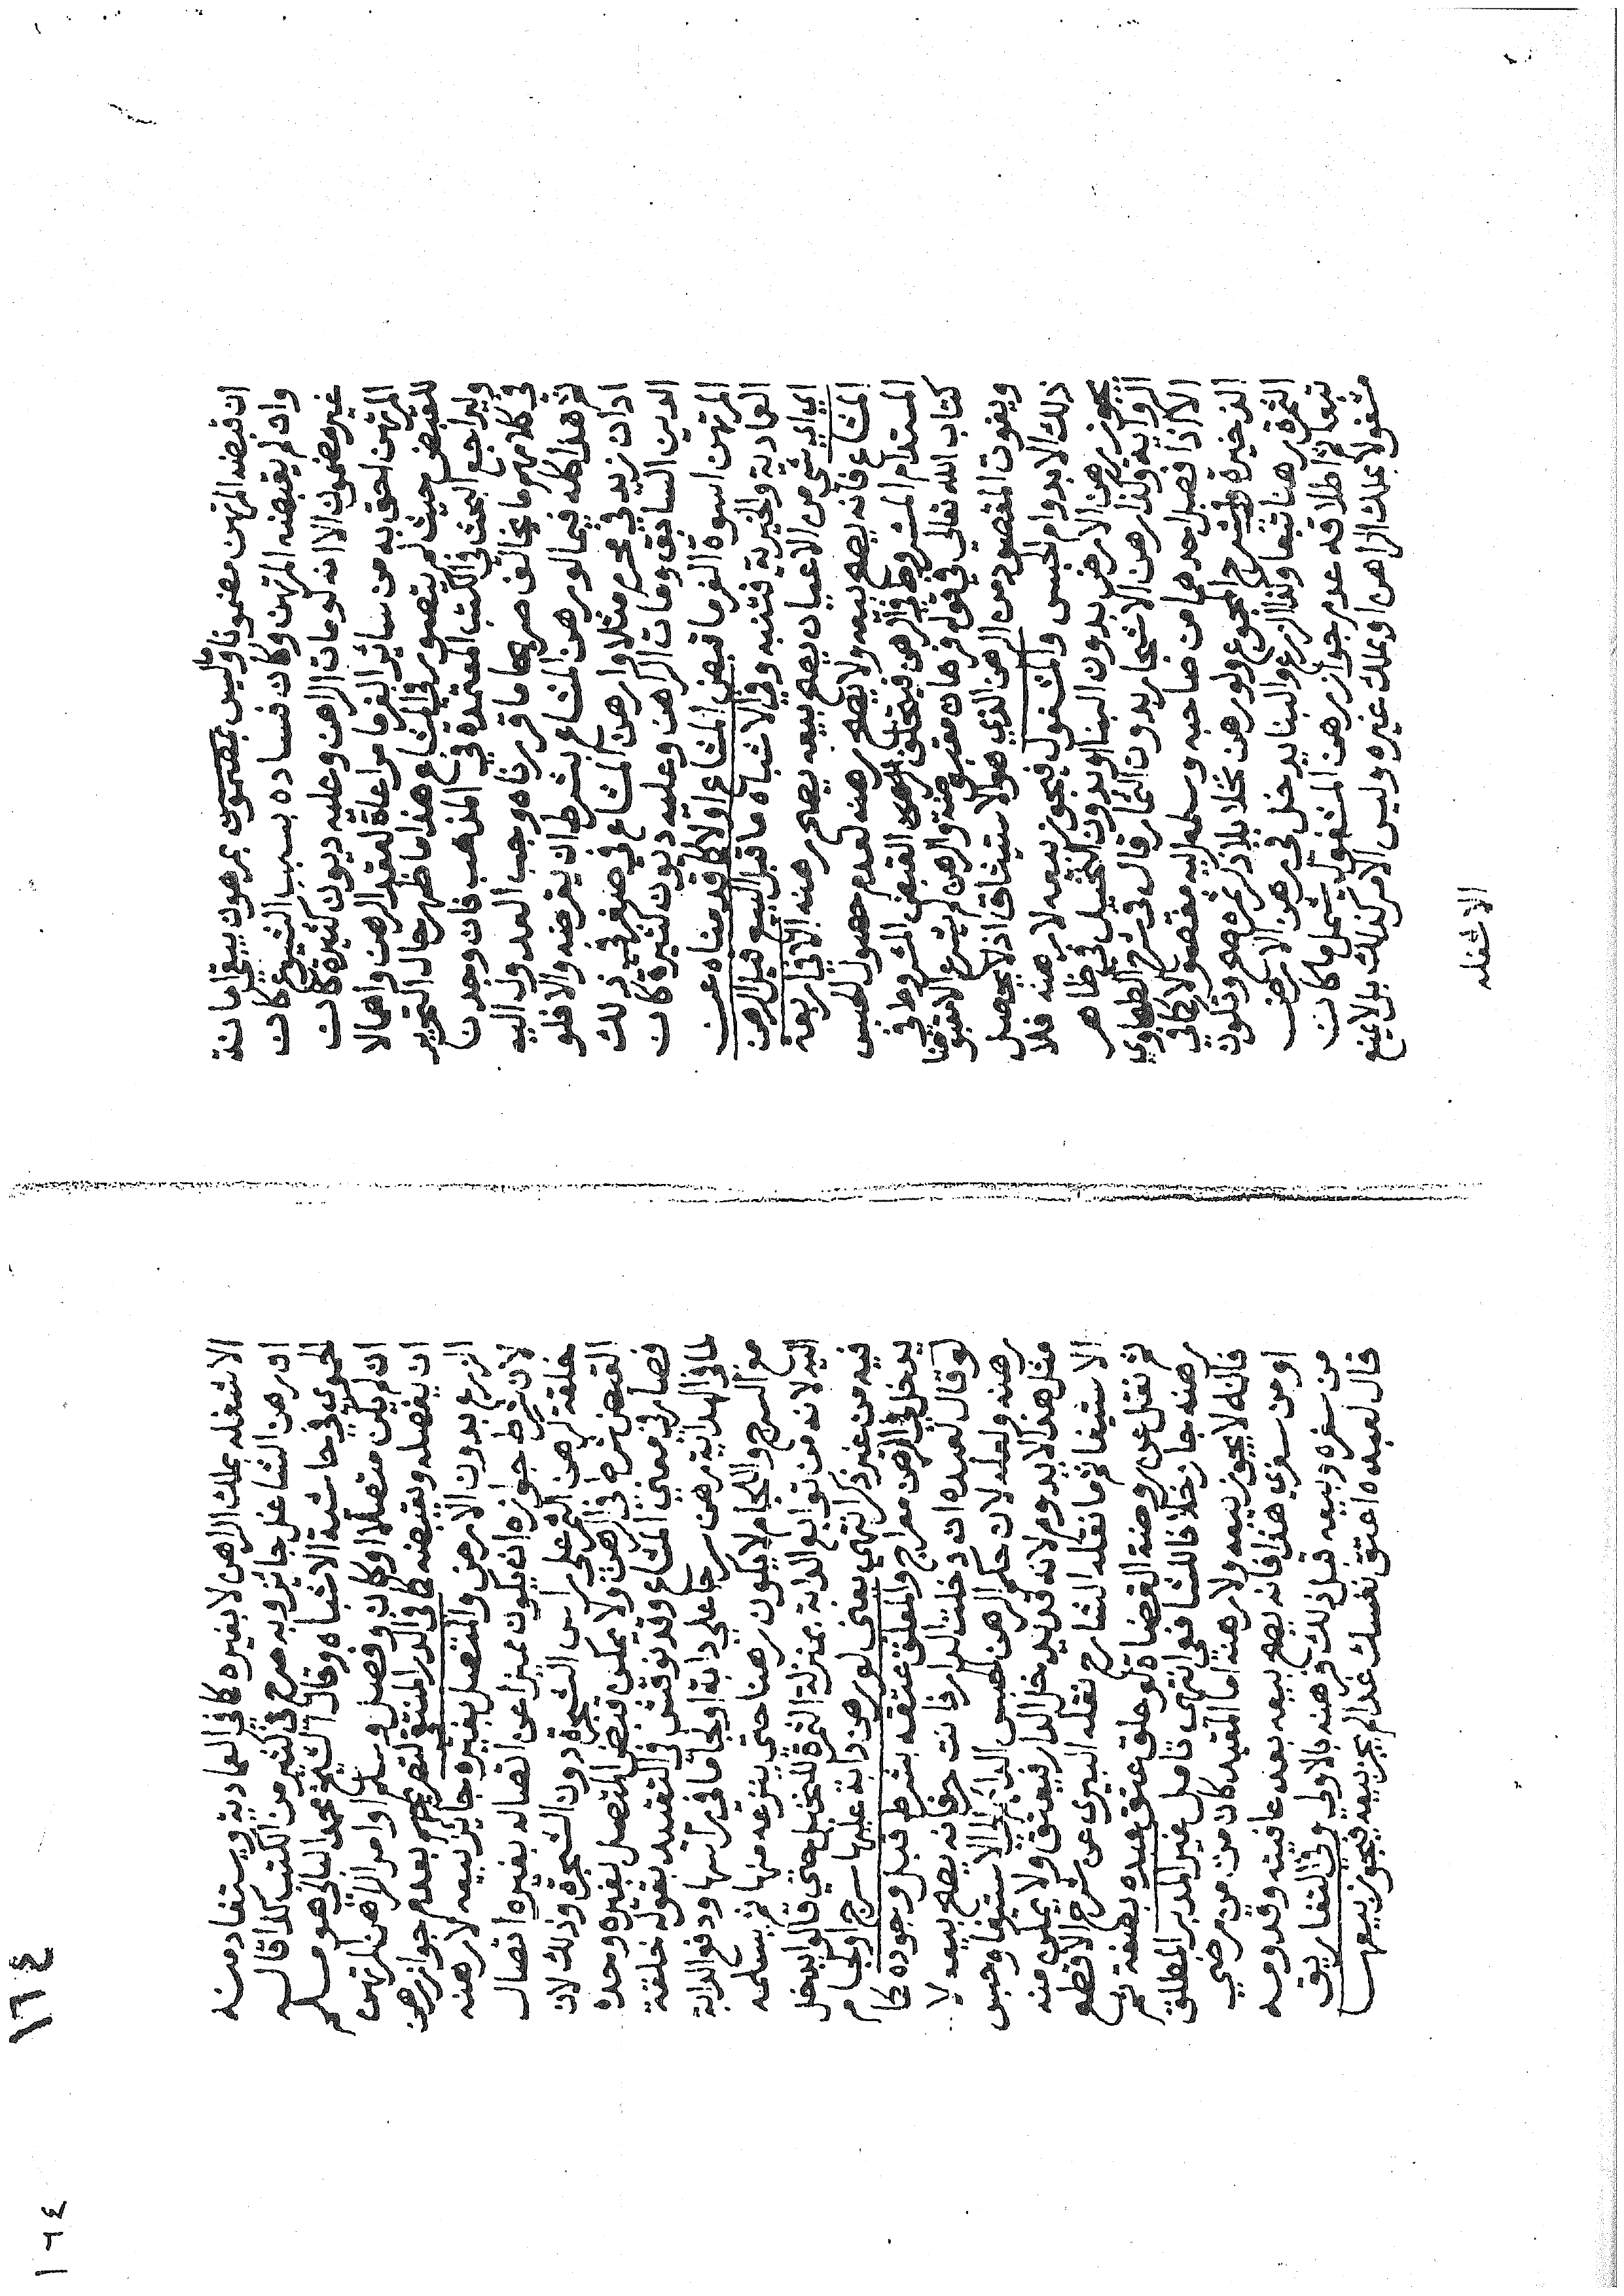 ان قبضه المرتهن مضمونا وليس بمضمون بمرهون يبقى امانة
وان لم يقبضه المرتهن وكان فساده بسبب الشيوع كان
غير مضمون الا انه لو مات الراهن وعليه ديون كثيرة كان
المرتهن احق به من سائر الغرما مراعاة لعقد الرهن واهمالا
للقبض حيث لم يتصور في المشاع هذا ما ظهر حال التحرير
وليراجع البحث في الكتب المعتمدة في المذهب فان وجدت
في كلامهم ما يخالف صريحا ما قررناه وجب العدول اليه
ثم هذا كله فيما لو رهن المشاع بشرط ان يقرضه والا فلو
ادان زيد في محرم مثلا وارهن المشاع في صفر في ذلك
الدين السابق ومات الراهن وعليه ديون كثيرة كان
المرتهن اسوة الغرما قبض المشاع اولا كما قدمناه عن
العمادية والخيرية فتنبه وفي الاشباه ما قبل البيع قبل الرهن
اي اي شي من الاعيان يصح بيعه يصح رهنه الا في اربعة
المشاع فانه يصح بيعه ولا يصح رهنه لعدم حصول الحبس
المستدام المشروط في الرهن فيتعلق القبض المشروط في
كتاب الله تعالى في قوله فرهان مقبوضة والرهن لم يشرع الا مقبوضا
ويفوت المقصود من الرهن الذي هو الاستيثاق اذ لا يحصل
ذلك الا بدوام الحبس والمشغول فيجوز بيعه لا رهنه فلا
يجوز رهن الارض بدون البنا او بدون النخيل في ظاهر
الرواية وكذا رهن الاشجار بدون الثمار قال في شرح الطحاوي
الا اذا فصل احدهما من صاحبه وسلم اليه مفصولا كما في
الذخيرة وشرح المجمع ولو رهن نخلا بلا ذكر ثمره صح وتكون
الثمرة رهنا تبعا وكذا الزرع والبنا يدخل في رهن الارض
تبعا ثم اطلاقه عدم جواز رهن المشغول يشمل ما كان
مشغولا بملك الراهن او بملك غيره وليس الامر كذلك بل لا يمنع
الا شغله
الا شغله بملك الراهن لا بغيره كما في العمادية ويستفاد منه
ان رهن الشاغل جائز وبه صرح في كثير من الكتب كذا قاله
الحموي في حاشية الاشباه وقال الشيخ محمد البعلي هو مسلم
ان لم يكن متصلا او كان وفصل وسلم او امر الراهن المرتهن
ان يفصله ويقبضه كما في الدر المنتقى لتصريحهم بعدم جواز رهن
الزرع بدون الارض والمتصل بغيره جائز بيعه لا رهنه
لان شرط جوازه ان يكون مميزا عن اتصاله بغيره اتصال
خلقة كرهن الثمر على راس الشجرة دون الشجرة وذلك لان
القبض شرط في الرهن ولا يمكن قبض المتصل بغيره وحده
فصار في معنى المشاع وقد نوقش في التقييد بقوله خلقة
لما في الهداية رهن سرجا على دابة او لجاما في راسها ودفع الدابة
مع السرج واللجام لا يكون رهنا حتى ينزعه منها ثم يسلمه
اليه لانه من توابع الدابة بمنزلة الثمرة للنخيل حتى قالوا يدخل
فيه من غير ذكر انتهى يعني لو رهن دابة عليها سرج او لجام
يدخل في الرهن معراج والمعلق عتقه بشرط قبل وجوده كما
لو قال لعبده ان دخلت الدار فانت حر فانه يصح بيعه لا
رهنه ولعله لان حكم الرهن الحبس الدائم الى الاستيفا وحبس
مثل هذا لا يدوم لانه قد يدخل الدار فيعتق ولا يمكن منه
الاستيفا ثم ما نقله الشارح نقله البيري عن شرح الاقطع
ثم نقل عن روضة القضاة لو علق عتق عبده بصفة ثم
رهنه جاز خلافا للشافعي انتهى تامل غير المدبر المطلق
فانه لا يجوز بيعه ولا رهنه اما المقيد كان مت من مرضي
او من سفري هذا فانه يصح بيعه بعد عافيته وقدومه
من سفره وبيعه قبل ذلك فرهنه بالاولى وفي التفاريق
قال لعبده اعتق نفسك غدا لم يجز بيعه فيجوز بيعها
١٦٤
١٦٤